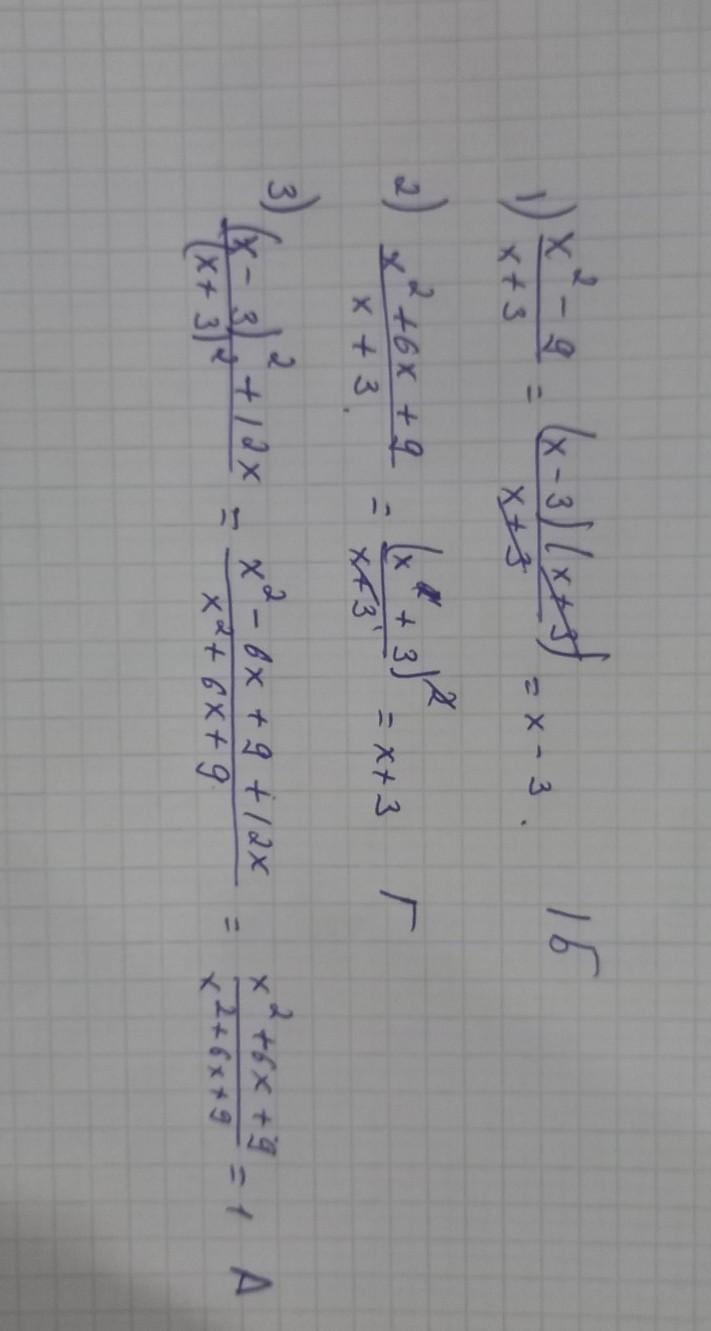 1) (x² - 9)/(x + 3) = ((x - 3)(x + 3))/(x + 3) = x - 3. 1б
2) (x² + 6x + 9)/(x + 3) = (x + 3)²/(x + 3) = x + 3 Г
3) ((x - 3)² + 12x)/(x + 3)² = (x² - 6x + 9 + 12x)/(x² + 6x + 9) = (x² + 6x + 9)/(x² + 6x + 9) = 1 A